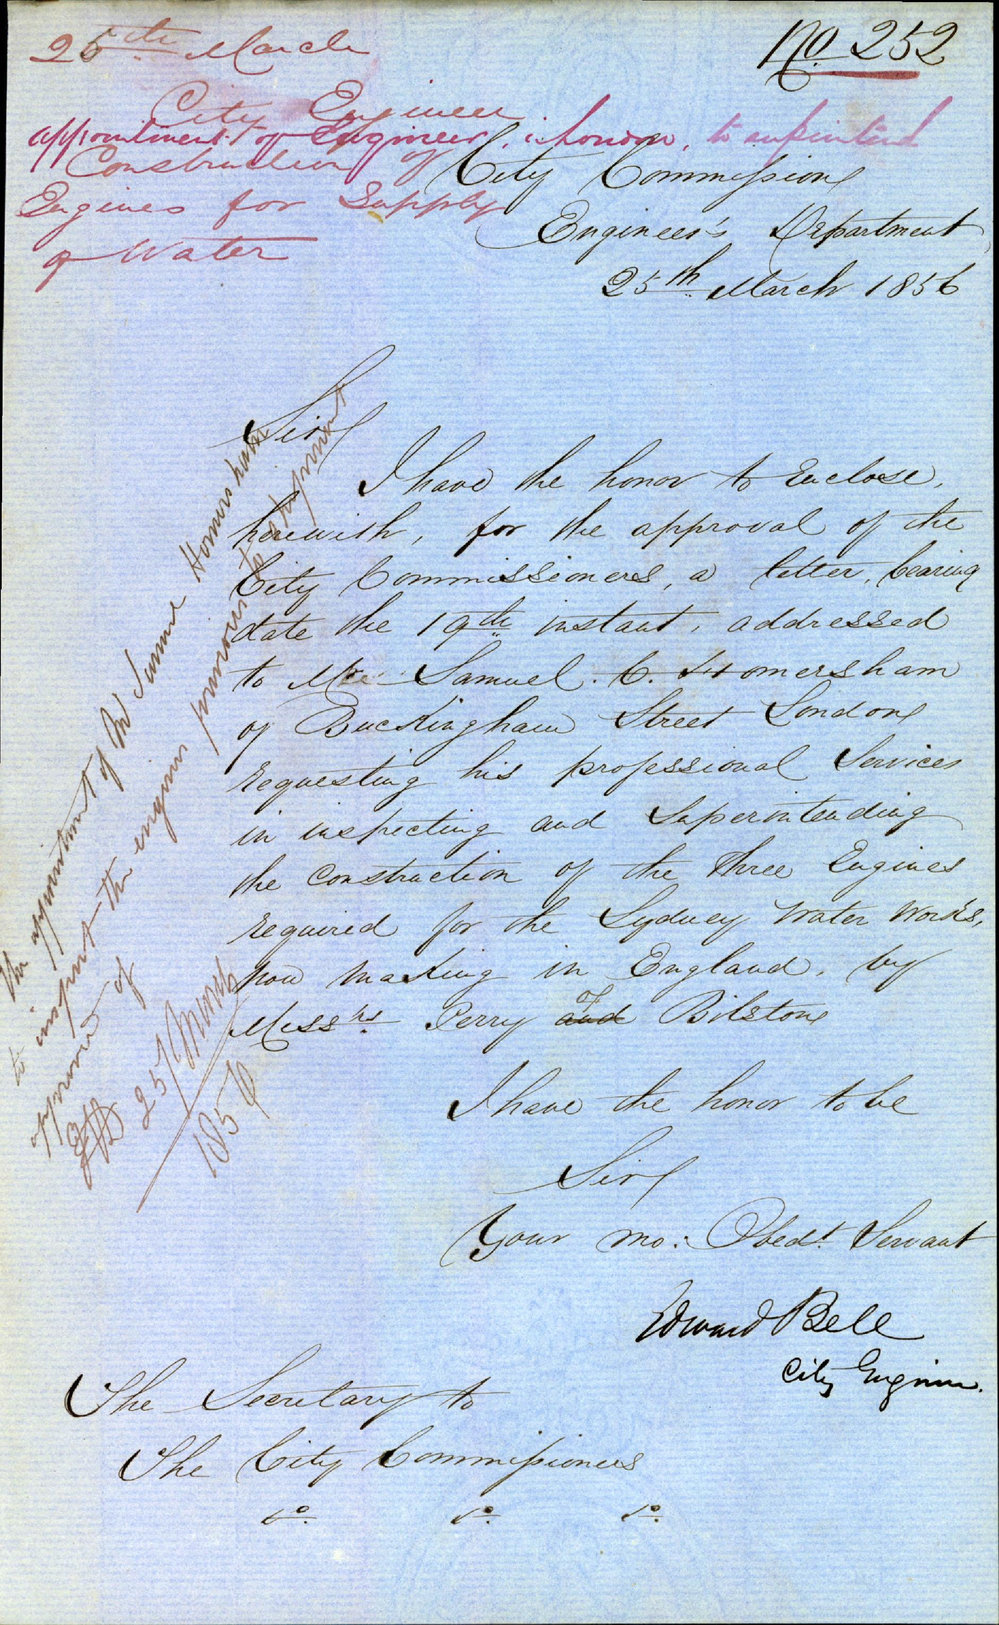 25th March
No. 252
City Engineer
appointment of Engineer, in London, to superintend
Construction of
Engines for Supply
of Water
City Commission
Engineer's Department
25th March 1856
Sir
I have the honor to Enclose,
herewith, for the approval of the
City Commissioners, a letter, bearing
date the 19th instant, addressed
to Mr. Samuel. C. Homersham
of Buckingham Street London
requesting his professional Services
in inspecting and Superintending
the Construction of the three Engines
required for the Sydney Water Works,
now making in England, by
Messrs. Perry and of Bilston
I have the honor to be
Sir
Your mo: Obedt. Servant
Edward Bell
City Engineer.
The Secretary to
The City Commissioners
The appointment of Mr Samuel Homersham
to inspect the engines previous to shipment
approved of
25/March
1856